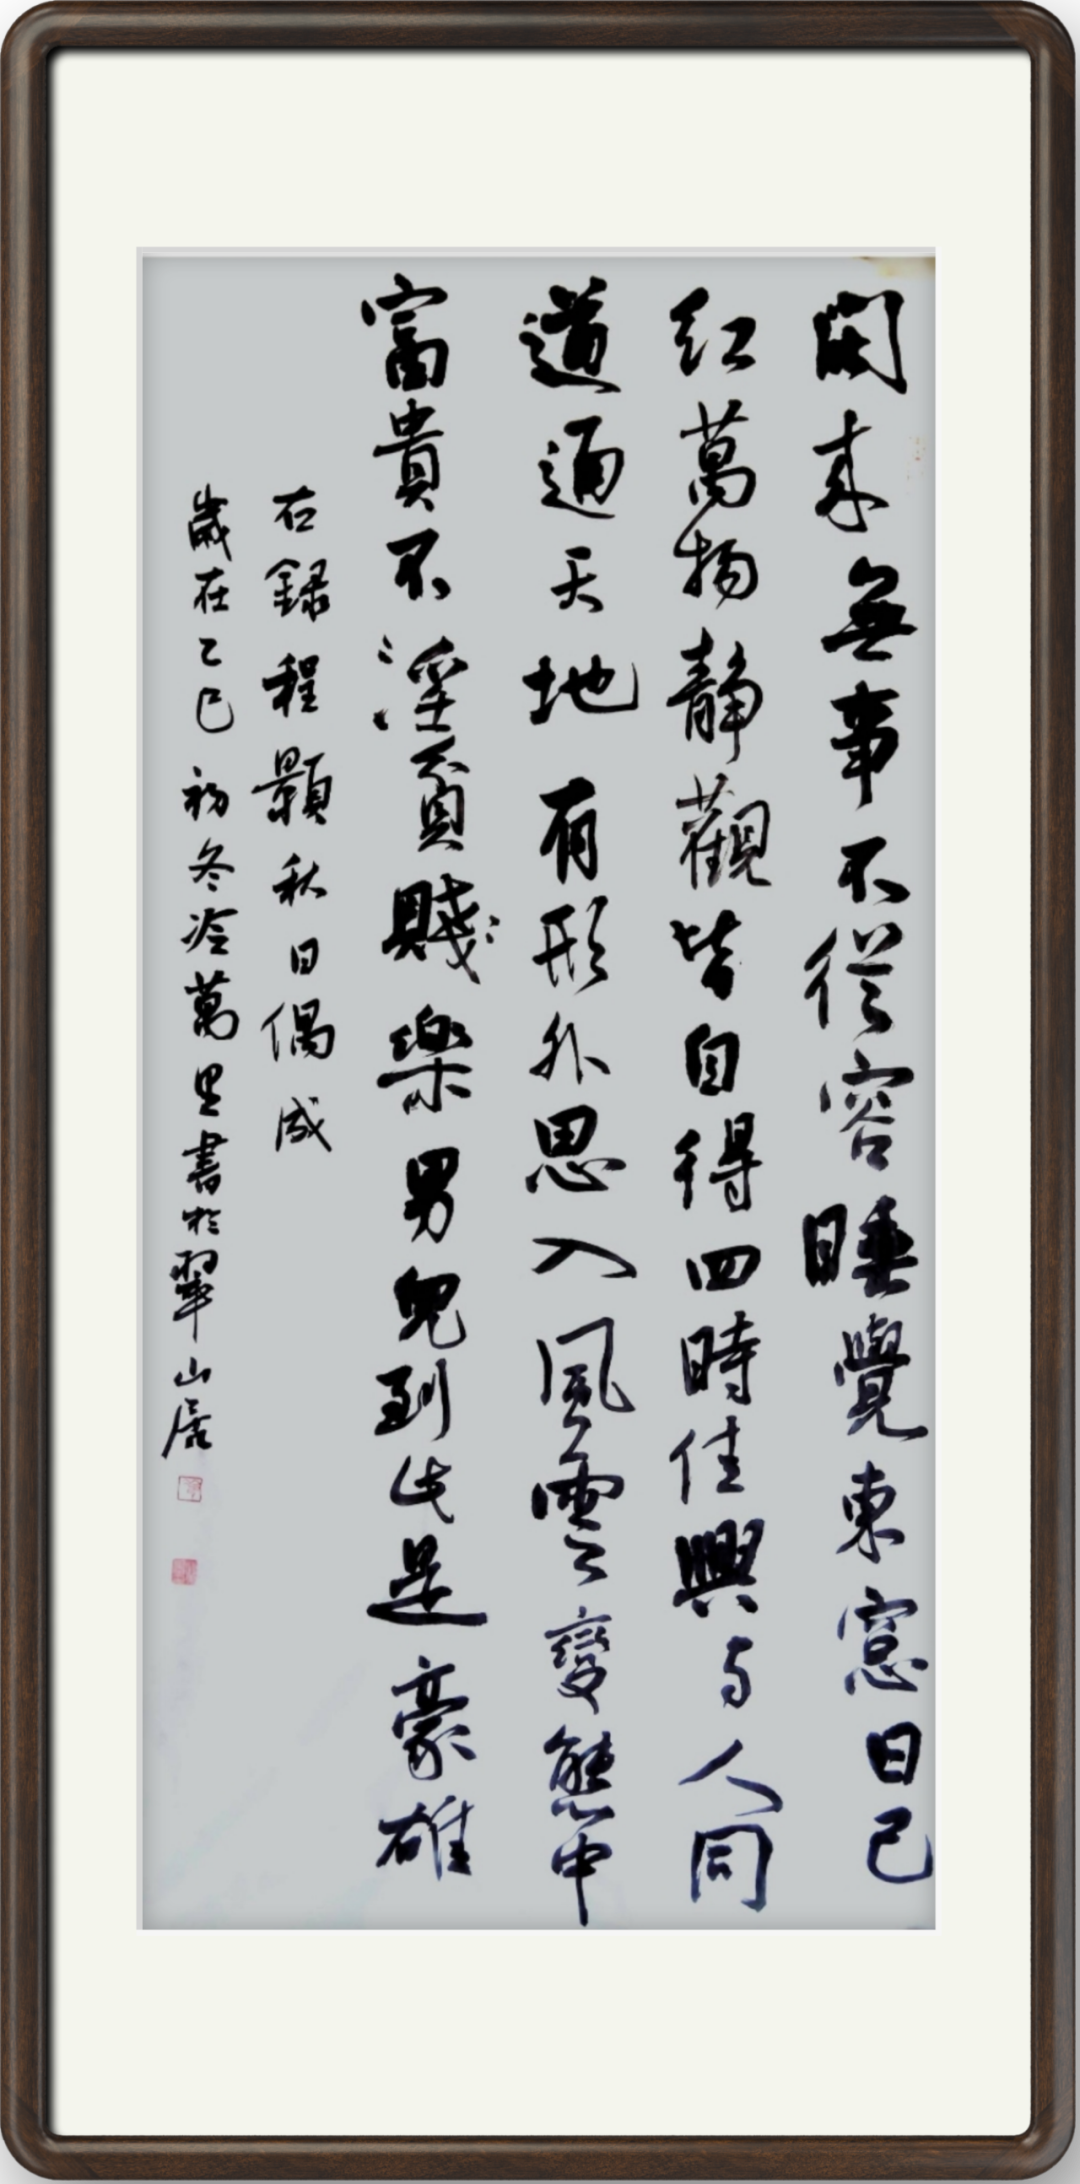 閑來無事不從容睡覺東窓日已
红萬物靜觀皆自得四時佳興与人同
道通天地有形外思入風雲變態中
富貴不淫貧賤樂男兒到此是豪雄
右録程顥秋日偶成
歲在乙巳初冬冷萬里書於翠山居